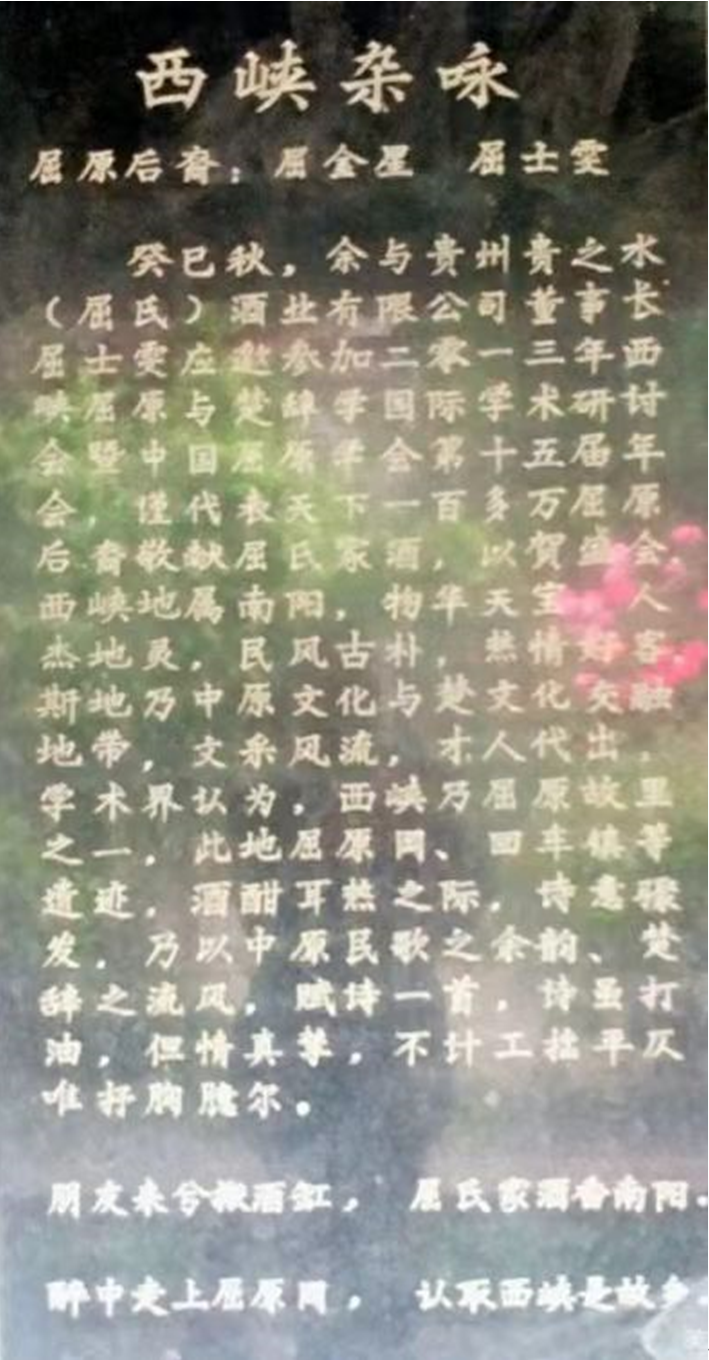 西峡杂咏
屈原后裔：屈金星 屈士雯
癸巳秋，余与贵州贵之水
（屈氏）酒业有限公司董事长
屈士雯应邀参加二零一三年西
峡屈原与楚辞学国际学术研讨
会暨中国屈原学会第十五届年
会，谨代表天下一百多万屈原
后裔敬献屈氏家酒，以贺盛会。
西峡地属南阳，物华天宝，人
杰地灵，民风古朴，热情好客，
斯地乃中原文化与楚文化交融
地带，文采风流，才人代出。
学术界认为，西峡乃屈原故里
之一，此地屈原冈、回车镇等
遗迹，酒酣耳热之际，诗意骤
发，乃以中原民歌之余韵、楚
辞之流风，赋诗一首，诗虽打
油，但情真挚，不计工拙平仄
唯抒胸臆尔。
朋友来兮掀酒缸， 屈氏家酒香南阳。
醉中走上屈原冈， 认取西峡是故乡。